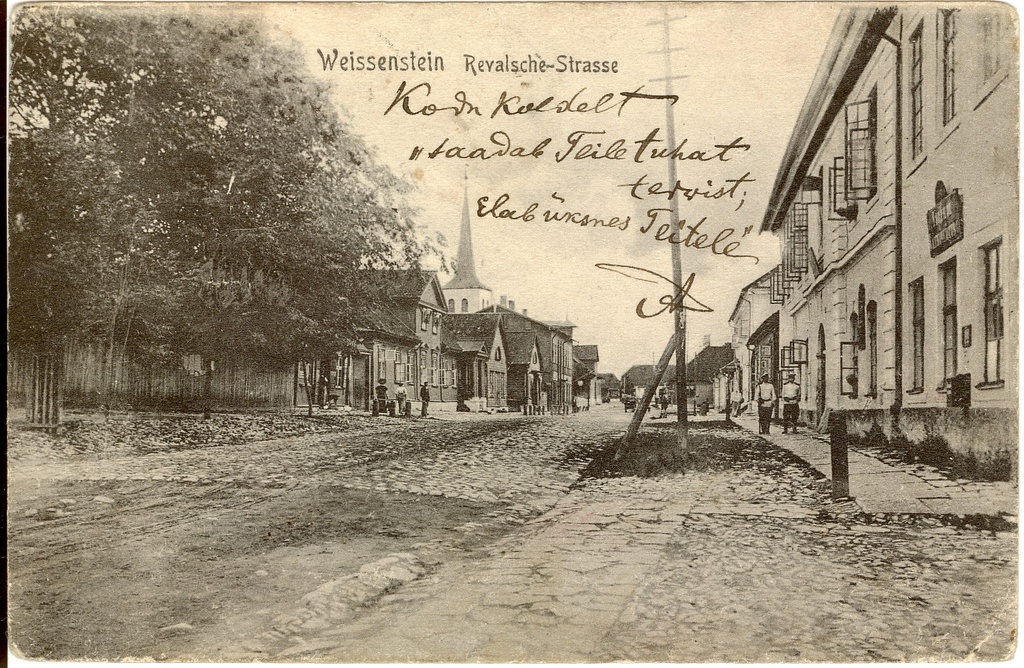 Weissenstein Revalsche-Strasse
Kodn Koldelt
„saadab Teile tuhat
terwist;
Elab üksnes Teitele"
A